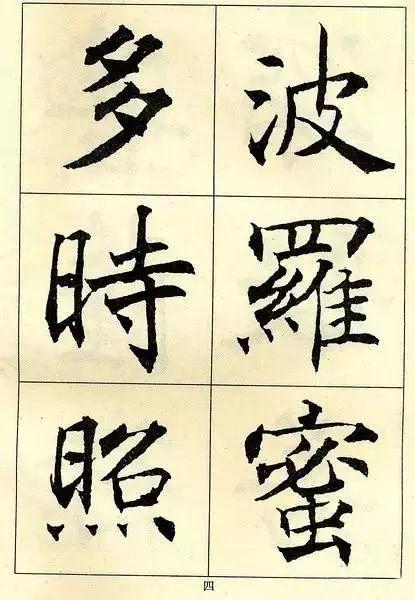 波羅蜜
多時照
四